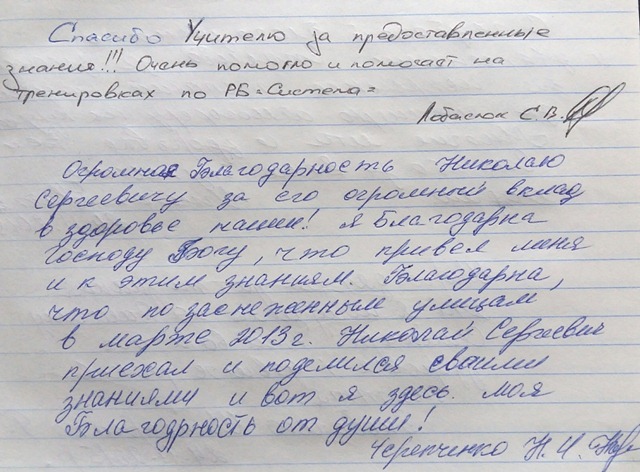 Спасибо Учителю за предоставленные
знания!!! Очень помогло и помогает на
тренировках по РБ "Система"
С.В.
Огромная Благодарность Николаю
Сергеевичу за его огромный вклад
в здоровье нации! Я Благодарна
Господу Богу, что привел меня
и к этим знаниям. Благодарна,
что по заснеженным улицам
в марте 2013г. Николай Сергеевич
приехал и поделился своими
знаниями и вот я здесь. Моя
Благодрность от души!
Черепченко Н. И.